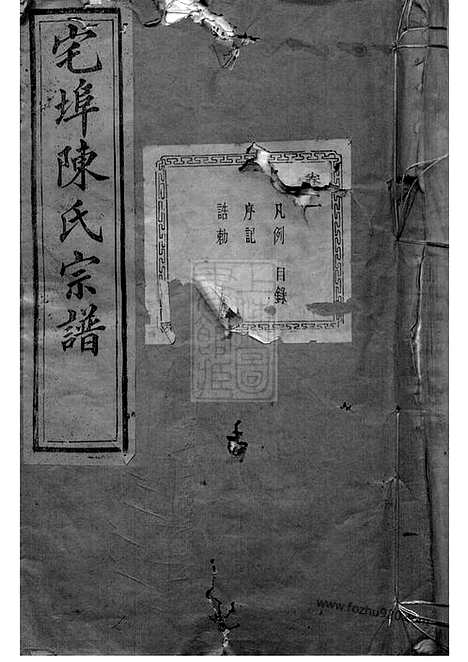 宅埠陳氏宗譜
卷
凡例 目錄
序記
誥勅
www.fozhu9